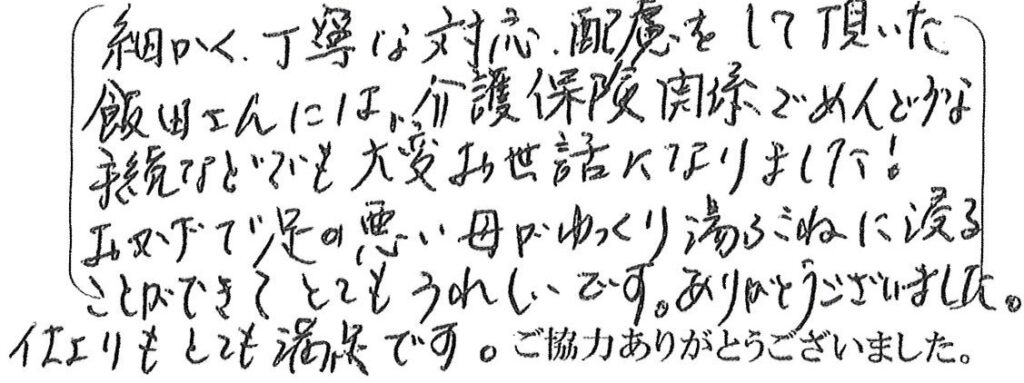 細かく、丁寧な対応、配慮をして頂いた
飯田さんには、介護保険関係でめんどうな
手続などでも大変お世話になりました!
おかげで足の悪い母がゆっくり湯ぶねに浸る
ことができてとてもうれしいです。ありがとうございました。
仕上りもとても満足です。ご協力ありがとうございました。